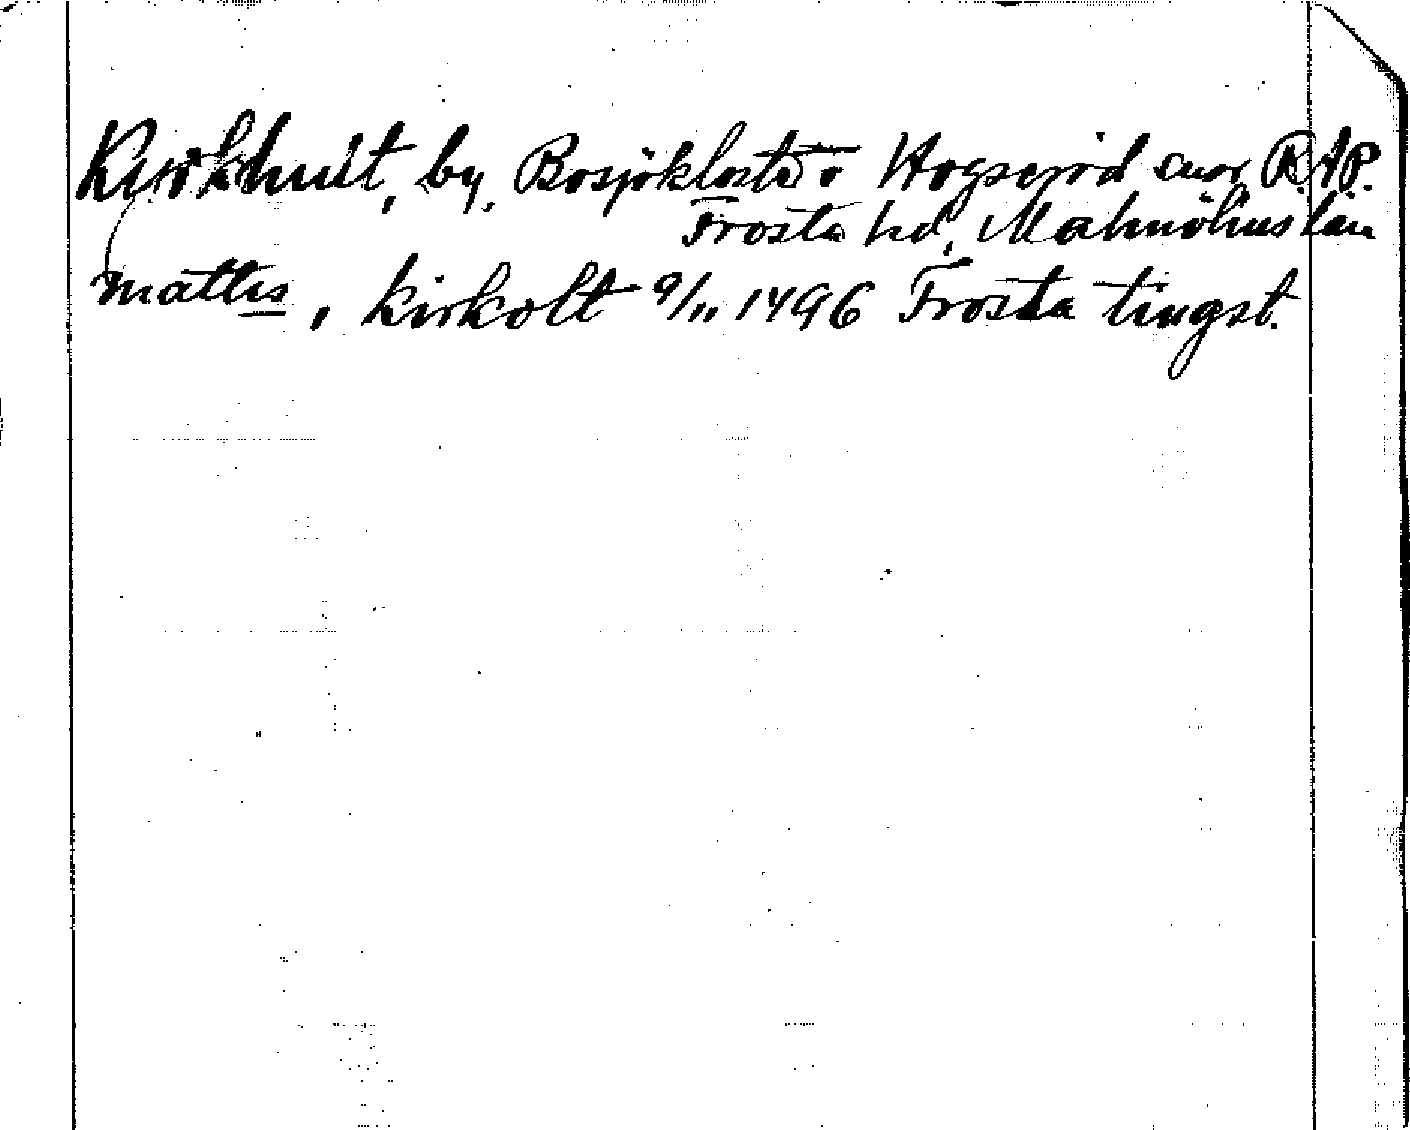 Kyrkhult, by, Bosjökloster o Hogseröd snr RAP.
Frosta hd, Malmöhus län
mattis, kirkolt 9/11 1496 Frosta tingst.